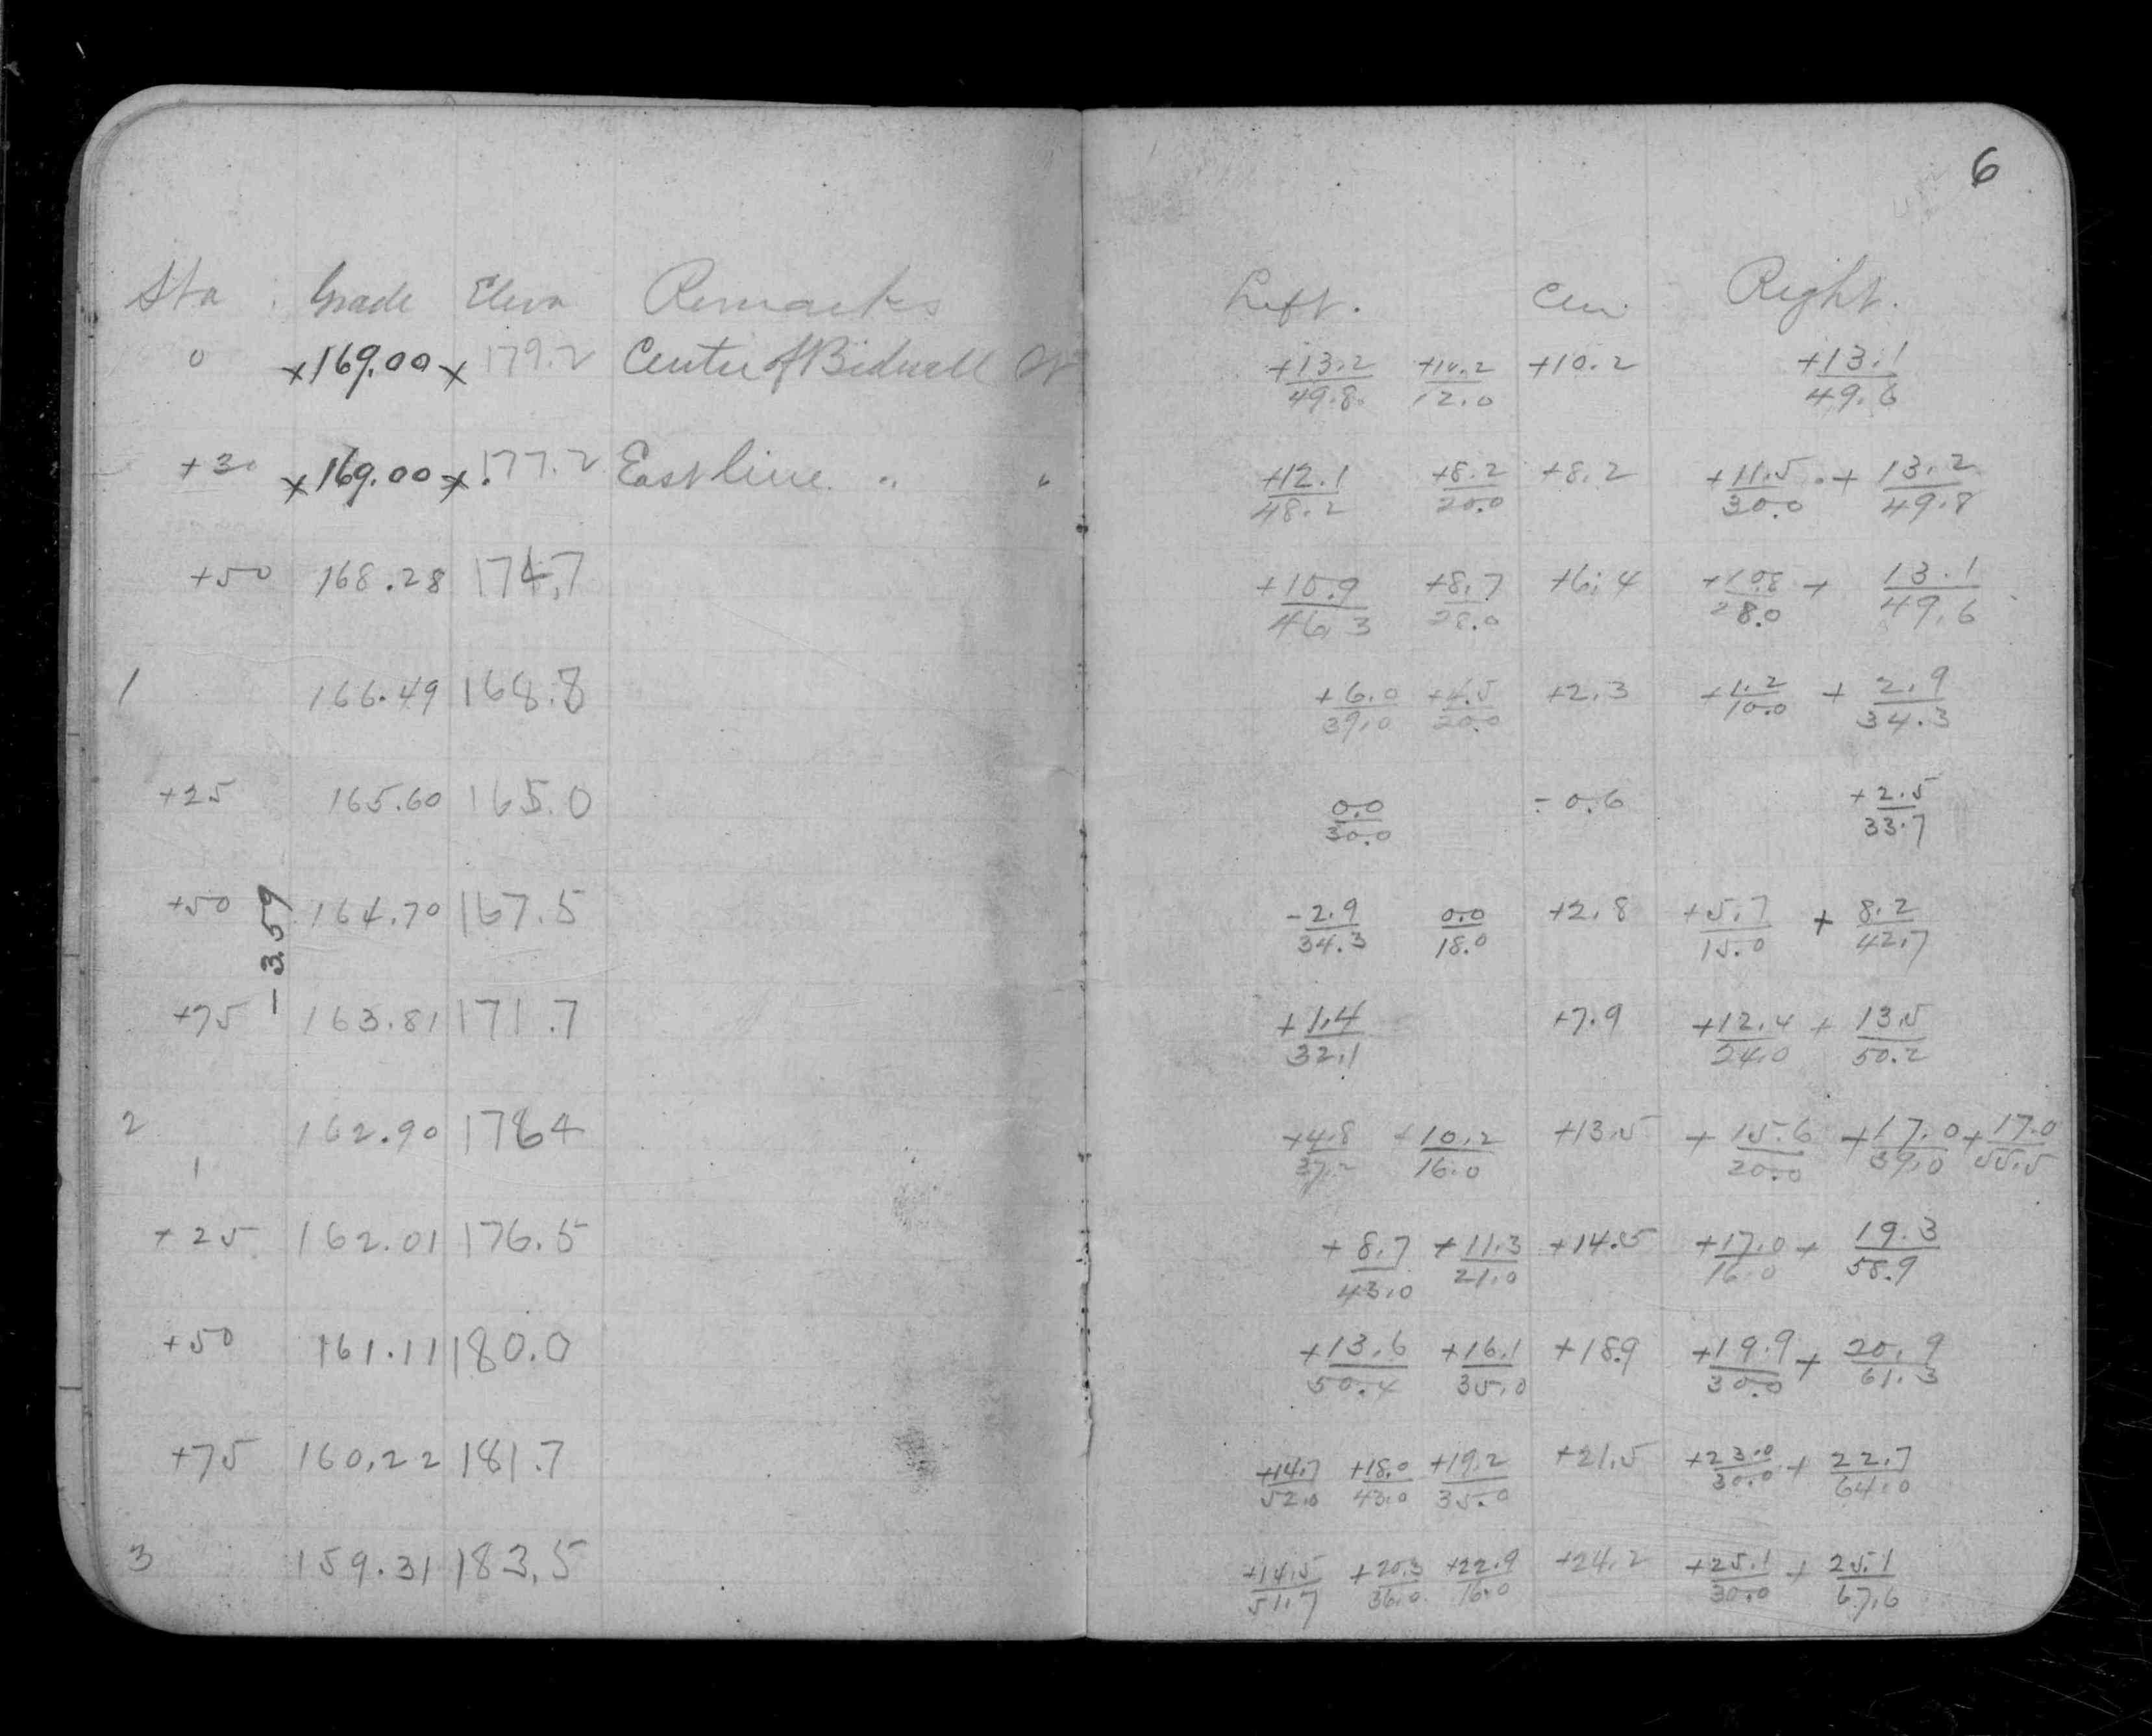 6
Sta. Grade Eleva Remarks Left. Cen. Right.
0 x169.00 x 179.2 Center of Bidwell +13.2/49.8 +10.2/12.0 +10.2 +13.1/49.6
+30 x169.00 x 177.2 East line " " +12.1/48.2 +8.2/20.0 +8.2 +11.5/30.0 + 13.2/49.8
+50 168.28 174.7 +10.9/46.3 +8.7/28.0 +6.4 +10.8/28.0 + 13.1/49.6
1 166.49 168.8 +6.0/39.0 +4.5/20.0 +2.3 +1.2/10.0 + 2.9/34.3
+25 165.60 165.0 0.0/30.0 -0.6 +2.5/33.7
+50 164.70 167.5 -2.9/34.3 0.0/18.0 +2.8 +5.7/15.0 + 8.2/42.7
-3.59
+75 163.81 171.7 +1.4/32.1 +7.9 +12.4/24.0 + 13.5/50.2
2 162.90 1764 +4.8/37.2 +10.2/16.0 +13.5 +15.6/20.0 +17.0/39.0 +17.0/55.5
+25 162.01 176.5 +8.7/43.0 +11.3/21.0 +14.5 +17.0/16.0 + 19.3/58.9
+50 161.11 180.0 +13.6/50.4 +16.1/35.0 +18.9 +19.9/30.0 + 20.9/61.3
+75 160.22 181.7 +14.7/52.0 +18.0/43.0 +19.2/35.0 +21.5 +23.0/30.0 + 22.7/64.0
3 159.31 183.5 +14.5/51.7 +20.3/36.0 +22.9/16.0 +24.2 +25.1/30.0 + 25.1/67.6